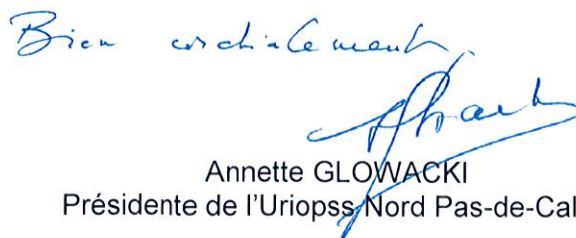 Bien cordialement,
Annette GLOWACKI
Présidente de l'Uriopss Nord Pas-de-Cal